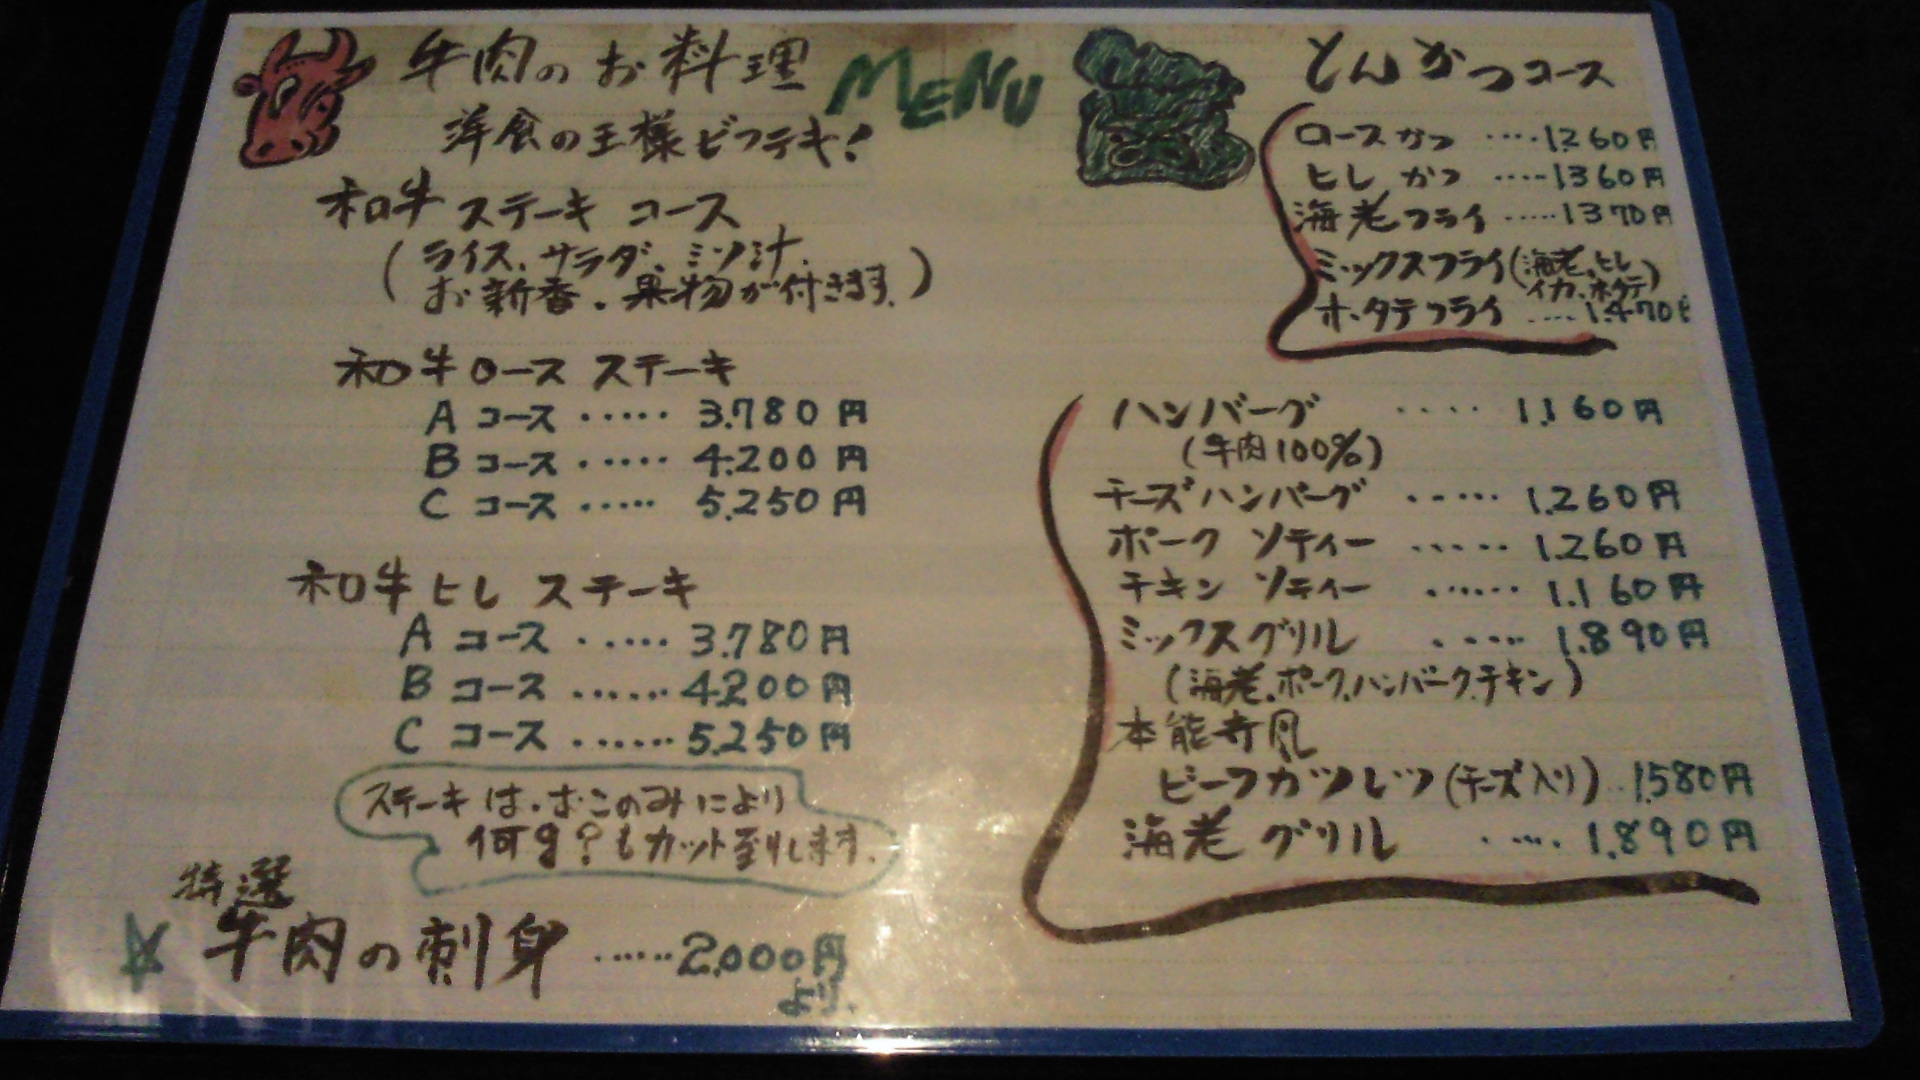 牛肉のお料理
MENU
洋食の王様ビフテキ!
和牛ステーキ コース
(ライス、サラダ、ミソ汁、
お新香、果物が付きます。)
和牛ロース ステーキ
A コース ・・・・・ 3.780円
B コース ・・・・・ 4.200円
C コース ・・・・・ 5.250円
和牛ヒレ ステーキ
A コース ・・・・・ 3.780円
B コース ・・・・・・ 4.200円
C コース ・・・・・・・ 5.250円
ステーキは、おこのみにより
何g?もカット致します。
特選
☆ 牛肉の刺身 ・・・・・ 2.000円
より。
とんかつコース
ロースかつ ・・・・1.260円
ヒレかつ ・・・・1360円
海老フライ ・・・・・1370円
ミックスフライ(海老、ヒレ
イカ、ホタテ)
ホタテフライ ・・・・1.470円
ハンバーグ ・・・・ 1.160円
(牛肉100%)
チーズハンバーグ ・・・・・ 1.260円
ポーク ソティー ・・・・・・ 1.260円
チキン ソティー ・・・・・・ 1.160円
ミックスグリル ・・・・・ 1.890円
(海老、ポーク、ハンバーク、チキン)
本能寺風
ビーフカツレツ(チーズ入り)・・1.580円
海老グリル ・・・・ 1.890円